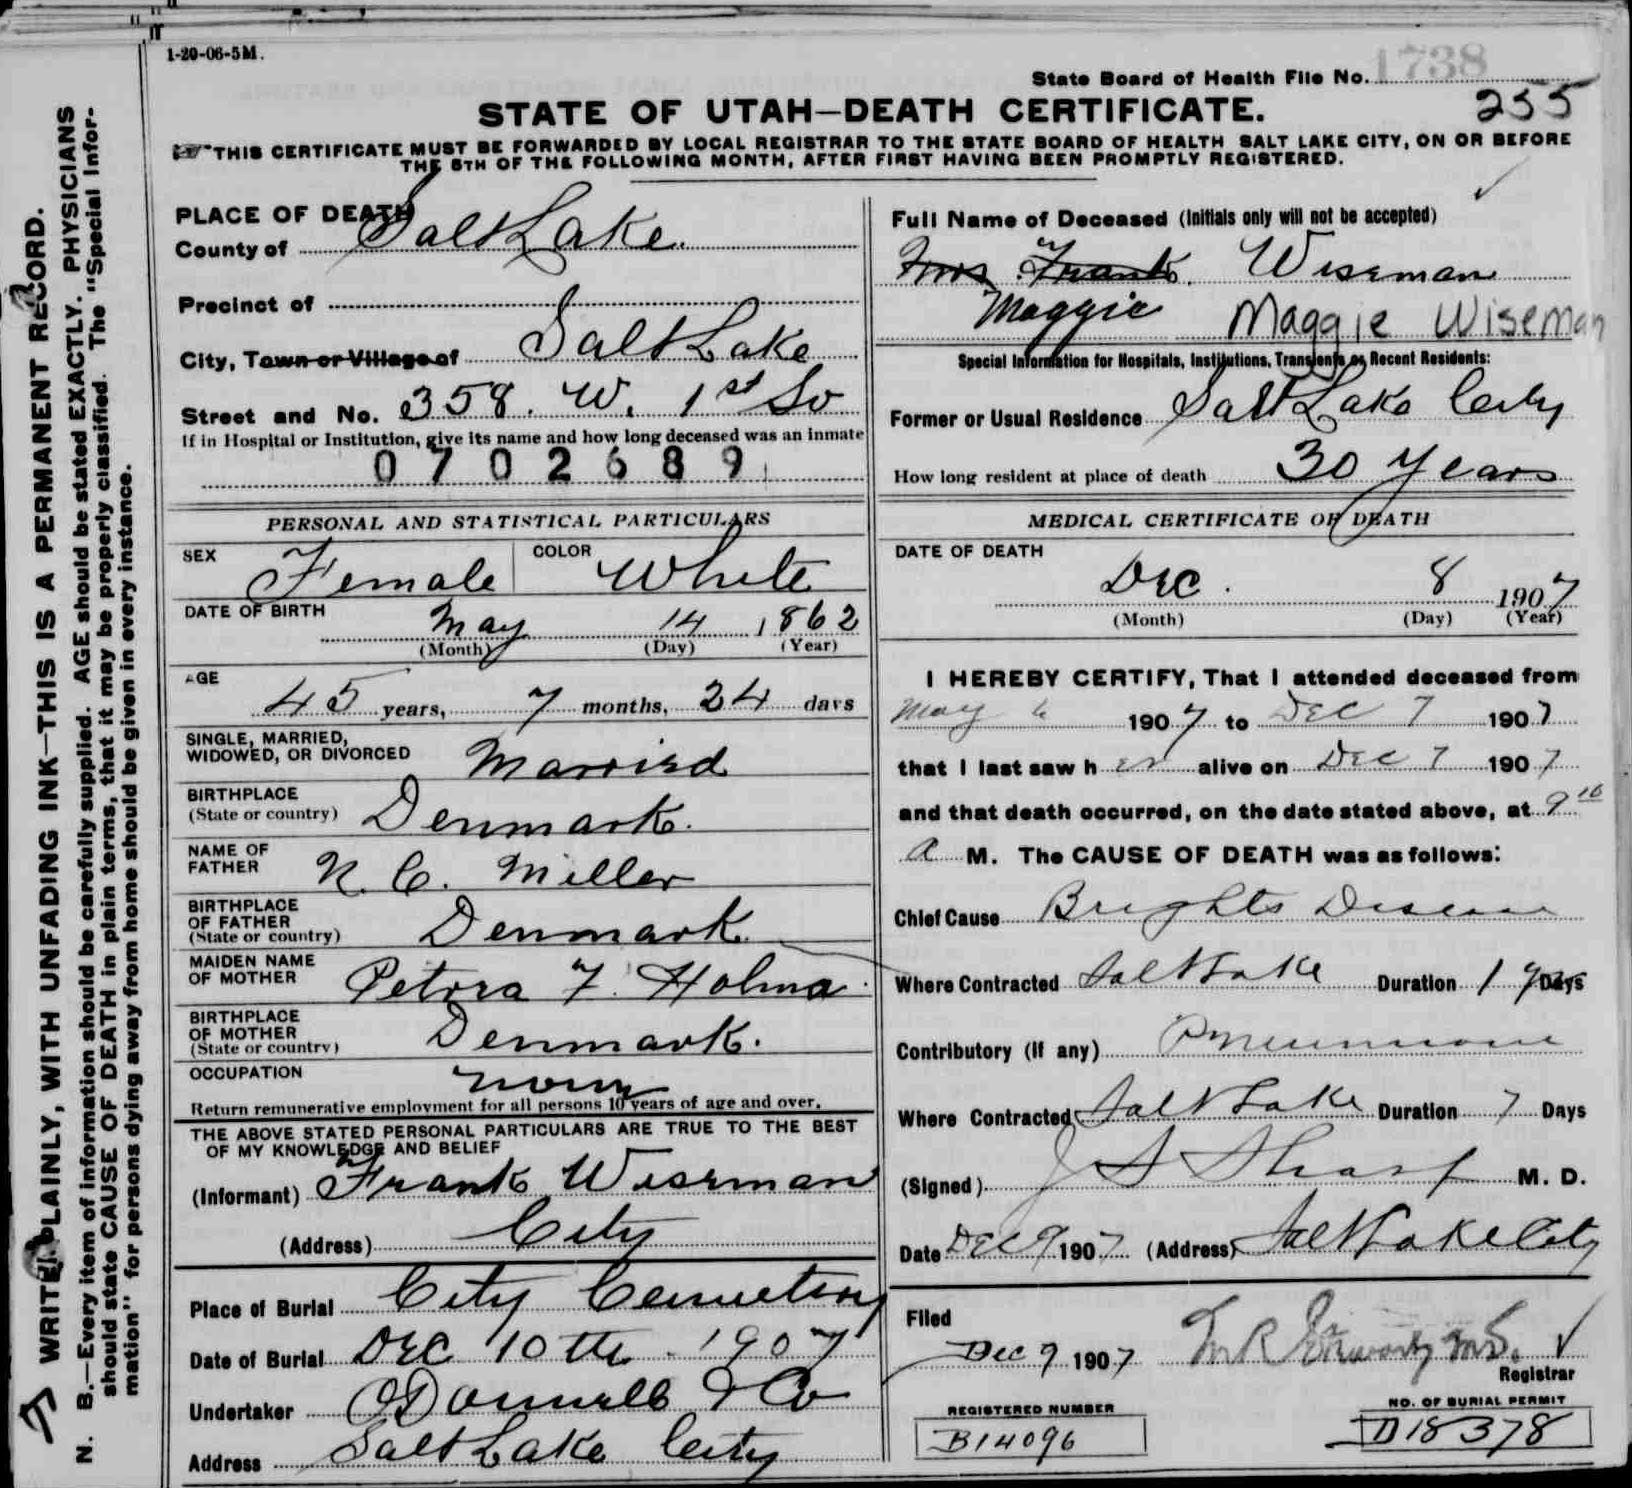 1-20-06-5M.
State Board of Health File No. 1738
255
STATE OF UTAH—DEATH CERTIFICATE.
THIS CERTIFICATE MUST BE FORWARDED BY LOCAL REGISTRAR TO THE STATE BOARD OF HEALTH SALT LAKE CITY, ON OR BEFORE
THE 5TH OF THE FOLLOWING MONTH, AFTER FIRST HAVING BEEN PROMPTLY REGISTERED.
WRITE PLAINLY, WITH UNFADING INK—THIS IS A PERMANENT RECORD.
N. B.—Every item of information should be carefully supplied. AGE should be stated EXACTLY. PHYSICIANS
should state CAUSE OF DEATH in plain terms, that it may be properly classified. The "Special Infor-
mation" for persons dying away from home should be given in every instance.
PLACE OF DEATH
County of Salt Lake.
Precinct of
City, Town or Village of Salt Lake
Street and No. 358. W. 1st So
If in Hospital or Institution, give its name and how long deceased was an inmate
0702689
PERSONAL AND STATISTICAL PARTICULARS
SEX Female COLOR White
DATE OF BIRTH
May 14 1862
(Month) (Day) (Year)
AGE
45 years, 7 months, 24 days
SINGLE, MARRIED,
WIDOWED, OR DIVORCED Married
BIRTHPLACE
(State or country) Denmark.
NAME OF
FATHER N. C. Miller
BIRTHPLACE
OF FATHER
(State or country) Denmark.
MAIDEN NAME
OF MOTHER Petora F. Holma
BIRTHPLACE
OF MOTHER
(State or country) Denmark.
OCCUPATION
Return remunerative employment for all persons 10 years of age and over.
THE ABOVE STATED PERSONAL PARTICULARS ARE TRUE TO THE BEST
OF MY KNOWLEDGE AND BELIEF
(Informant) Frank Wiseman
(Address) City
Place of Burial City Cemetery
Date of Burial Dec 10th 1907
Undertaker O'Donnell & Co
Address Salt Lake City
Full Name of Deceased (Initials only will not be accepted)
Mrs Frank. Wiseman
Maggie Maggie Wiseman
Special Information for Hospitals, Institutions, Transients or Recent Residents:
Former or Usual Residence Salt Lake City
How long resident at place of death 30 years
MEDICAL CERTIFICATE OF DEATH
DATE OF DEATH
Dec. 8 1907
(Month) (Day) (Year)
I HEREBY CERTIFY, That I attended deceased from
May 6 1907 to Dec 7 1907
that I last saw her alive on Dec 7 1907
and that death occurred, on the date stated above, at 9 10
a M. The CAUSE OF DEATH was as follows:
Chief Cause Brights Disease
Where Contracted Salt Lake Duration 1 y Days
Contributory (if any) Pneumonia
Where Contracted Salt Lake Duration 7 Days
(Signed) J S Sharp M. D.
Date Dec 9 1907 (Address) Salt Lake City
Filed
Dec 9 1907
Registrar
REGISTERED NUMBER
B14096
NO. OF BURIAL PERMIT
D18378